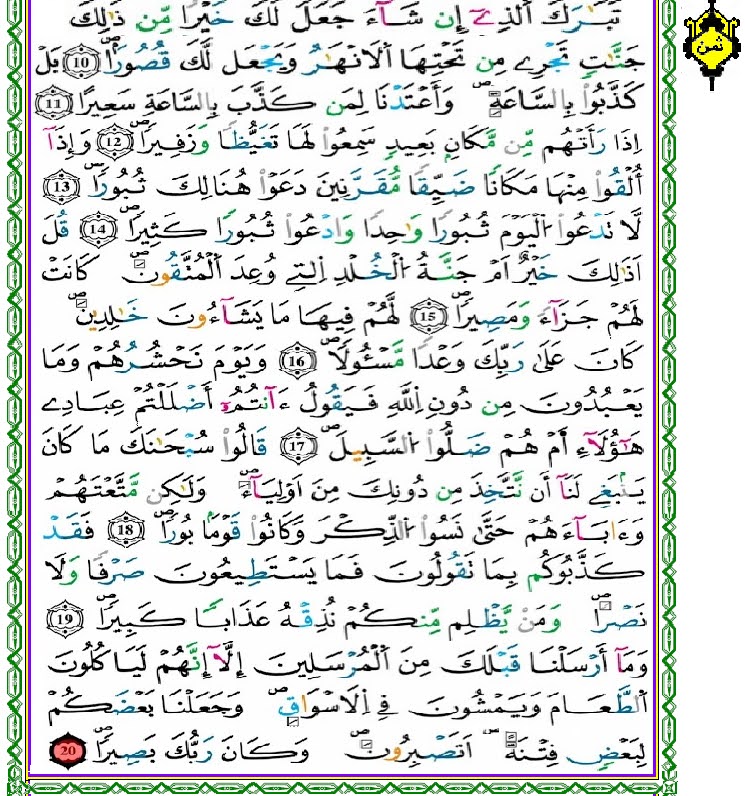 تَبَٰرَكَ اَلذِے إِن شَآءَ جَعَلَ لَكَ خَيْراٗ مِّن ذَٰلِكَ
جَنَّٰتٖ تَجْرِے مِن تَحْتِهَا اَلَانْهَٰرُ وَيَجْعَل لَّكَ قُصُوراَۢ 10 بَلْ
كَذَّبُواْ بِالسَّاعَةِ وَأَعْتَدْنَا لِمَن كَذَّبَ بِالسَّاعَةِ سَعِيراً 11
اِذَا رَأَتْهُم مِّن مَّكَانِۢ بَعِيدٖ سَمِعُواْ لَهَا تَغَيُّظاٗ وَزَفِيراٗ 12 وَإِذَآ
أُلْقُواْ مِنْهَا مَكَاناٗ ضَيِّقاٗ مُّقَرَّنِينَ دَعَوْاْ هُنَالِكَ ثُبُوراٗ 13
لَّا تَدْعُواْ اُلْيَوْمَ ثُبُوراٗ وَٰحِداٗ وَادْعُواْ ثُبُوراٗ كَثِيراٗ 14 قُلَ
اَذَٰلِكَ خَيْرٌ اَمْ جَنَّةُ اُلْخُلْدِ اِلتِے وُعِدَ اَلْمُتَّقُونَ كَانَتْ
لَهُمْ جَزَآءٗ وَمَصِيراٗ 15 لَّهُمْ فِيهَا مَا يَشَآءُونَ خَٰلِدِينَ
كَانَ عَلَىٰ رَبِّكَ وَعْداٗ مَّسْـُٔولاٗ 16 وَيَوْمَ نَحْشُرُهُمْ وَمَا
يَعْبُدُونَ مِن دُونِ اِللَّهِ فَيَقُولُ ءَآنتُمُۥٓ أَضْلَلْتُمْ عِبَادِے
هَٰٓؤُلَآءِ اَمْ هُمْ ضَلُّواْ اُلسَّبِيلَ 17 قَالُواْ سُبْحَٰنَكَ مَا كَانَ
يَنۢبَغِے لَنَآ أَن نَّتَّخِذَ مِن دُونِكَ مِنَ اَوْلِيَآءَ وَلَٰكِن مَّتَّعْتَهُمْ
وَءَابَآءَهُمْ حَتَّىٰ نَسُواْ اُلذِّكْرَ وَكَانُواْ قَوْماَۢ بُوراٗ 18 فَقَدْ
كَذَّبُوكُم بِمَا تَقُولُونَ فَمَا يَسْتَطِيعُونَ صَرْفاٗ وَلَا
نَصْراٗ وَمَنْ يَّظْلِم مِّنكُمْ نُذِقْهُ عَذَاباٗ كَبِيراٗ 19
وَمَآ أَرْسَلْنَا قَبْلَكَ مِنَ اَلْمُرْسَلِينَ إِلَّآ إِنَّهُمْ لَيَاكُلُونَ
اَلطَّعَامَ وَيَمْشُونَ فِے اِلَاسْوَاقِ وَجَعَلْنَا بَعْضَكُمْ
لِبَعْضٖ فِتْنَةً اَتَصْبِرُونَ وَكَانَ رَبُّكَ بَصِيراٗ 20
ثمن